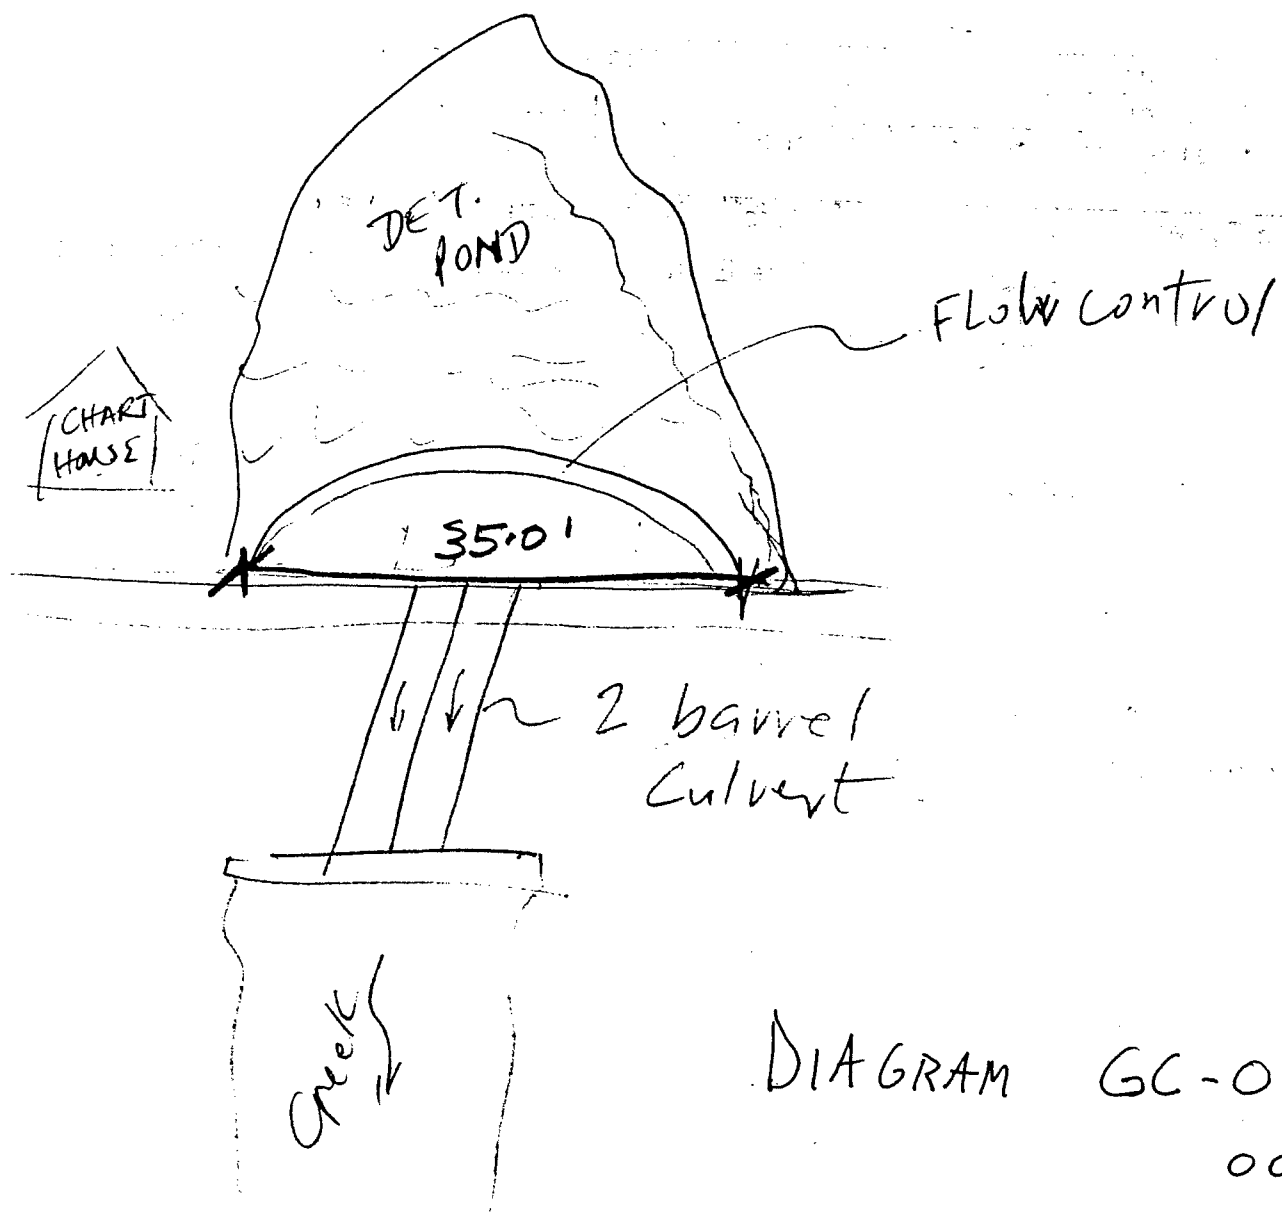 DET.
POND
Flow control
CHART
HOUSE
35.0'
2 barrel
Culvert
Creek
DIAGRAM GC-0
00